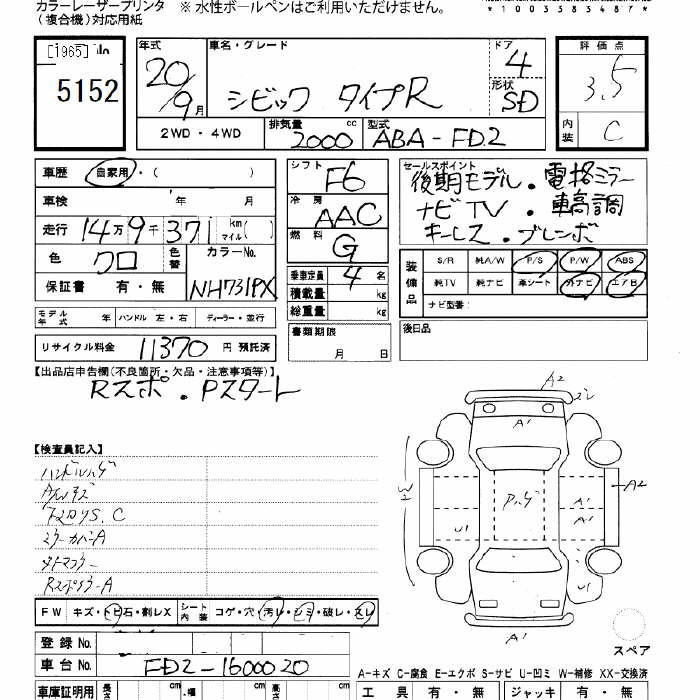 カラーレーザープリンタ ※ 水性ボールペンはご利用いただけません。
(複合機)対応用紙
*1003383487*
[1965]
5152
年式 20/9月
車名・グレード シビック タイプR
ドア 4
形状 SD
評価点 3.5
内装 C
2WD・4WD
排気量 2000 cc
型式 ABA-FD2
車歴 自家用・( )
車検 年 月
走行 14万9千371 km( ) マイル( )
色 クロ 色替 カラーNo. NH731PX
保証書 有・無
シフト F6
冷房 AAC
燃料 G
乗車定員 4 名
積載量 kg
総重量 kg
セールスポイント
後期モデル・電格ミラー
ナビTV・車高調
キーレス・ブレンボ
装備品
S/R 純A/W P/S P/W ABS
純TV 純ナビ 革シート 外ナビ エアB
ナビ型番:
モデル年式 年 ハンドル 左・右 ディーラー・並行
書類期限 月 日
後日品
リサイクル料金 11370 円 預託済
【出品店申告欄(不良箇所・欠品・注意事項等)】
Rスポ・Pスタート
【検査員記入】
ハンドルハゲ
ミラーカバーA
RスポイラーA
A2
A1
W
Pハゲ
A1
A2
U1
A1
U1
A1
スペア
FW キズ・トビ石・割レX シート内装 コゲ・穴・汚レ・シミ・破レ・スレ
登録No.
車台No. FD2-1600020
A-キズ C-腐食 E-エクボ S-サビ U-凹ミ W-補修 XX-交換済
車庫証明用 長さ cm ・幅 cm 高さ cm
工具 有・無 ジャッキ 有・無